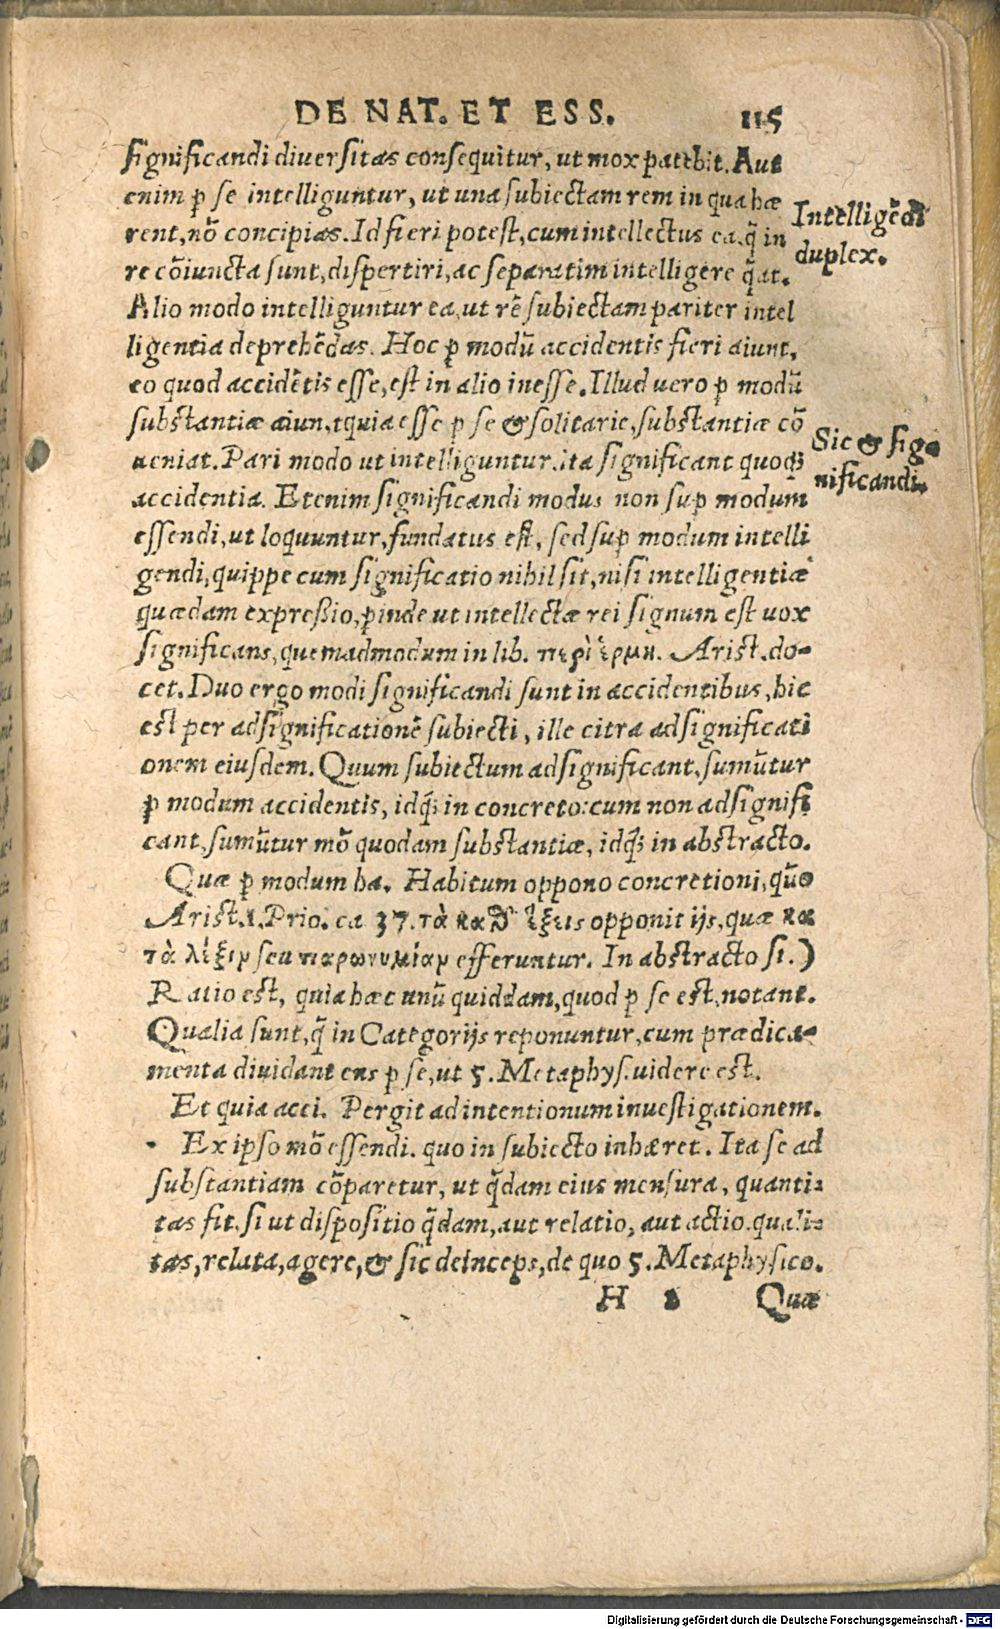 DE NAT. ET ESS. 115
significandi diversitas consequitur, ut mox patebit. Aut
enim ꝑ se intelliguntur, ut una subiectam rem in qua hæ
rent, nõ concipias. Id fieri potest, cum intellectus ea. q̃ in
re cõiuncta sunt, dispertiri, ac separatim intelligere q̃at.
Alio modo intelliguntur ea, ut rẽ subiectam pariter intel
ligentia deprehẽdas. Hoc ꝑ modũ accidentis fieri aiunt,
eo quod accidẽtis esse, est in alio inesse. Illud vero ꝑ modũ
substantiæ aiun, tquia esse ꝑ se & solitarie, substantiæ cõ
ueniat. Pari modo ut intelliguntur. ita significant quoq;
accidentia. Etenim significandi modus non suꝑ modum
essendi, ut loquuntur, fundatus est, sed suꝑ modum intelli
gendi, quippe cum significatio nihil sit, nisi intelligentiæ
quædam expreßio, ꝑinde ut intellectæ rei signum est uox
significans, quemadmodum in lib. περὶ ἑρμη. Arist. do-
cet. Duo ergo modi significandi sunt in accidentibus, hic
est per adsignificationẽ subiecti, ille citra adsignificati
onem eiusdem. Quum subiectum adsignificant, sumũtur
ꝑ modum accidentis, idq́; in concreto: cum non adsignifi
cant, sumũtur mõ quodam substantiæ, idq́; in abstracto.
Quæ ꝑ modum ha. Habitum oppono concretioni, qũo
Arist. 1. Prio. ca 37. τὰ καθ᾽ ἕξεις opponit ijs, quæ κα
τὰ λέξιν seu παρωνυμίαν efferuntur. In abstracto si.)
Ratio est, quia hæc unũ quiddam, quod ꝑ se est, notant.
Qualia sunt, q̃ in Categorijs reponuntur, cum prædica-
menta diuidant ens ꝑ se, ut 5. Metaphys. uidere est.
Et quia acci. Pergit ad intentionum inuestigationem.
Ex ipso mõ essendi. quo in subiecto inhæret. Ita se ad
substantiam cõparetur, ut q̃dam eius mensura, quanti-
tas fit. si ut dispositio q̃dam, aut relatio, aut actio. quali-
tas, relata, agere, & sic deinceps, de quo 5. Metaphysico.
H Quæ
Intelligẽdi
duplex.
Sic & sig-
nificandi.